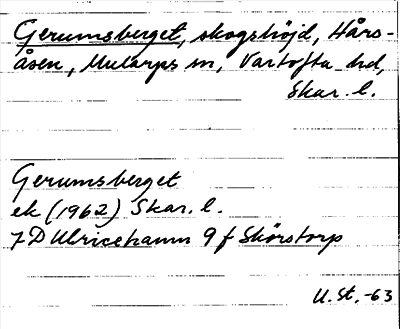 Gerumsberget, skogshöjd, Hårs-
åsen, Mularps sn, Vartofta hd,
Skar. l.
Gerumsberget
ek (1962) Skar. l.
7D Ulricehamn 9 f Skörstorp
U. St. -63